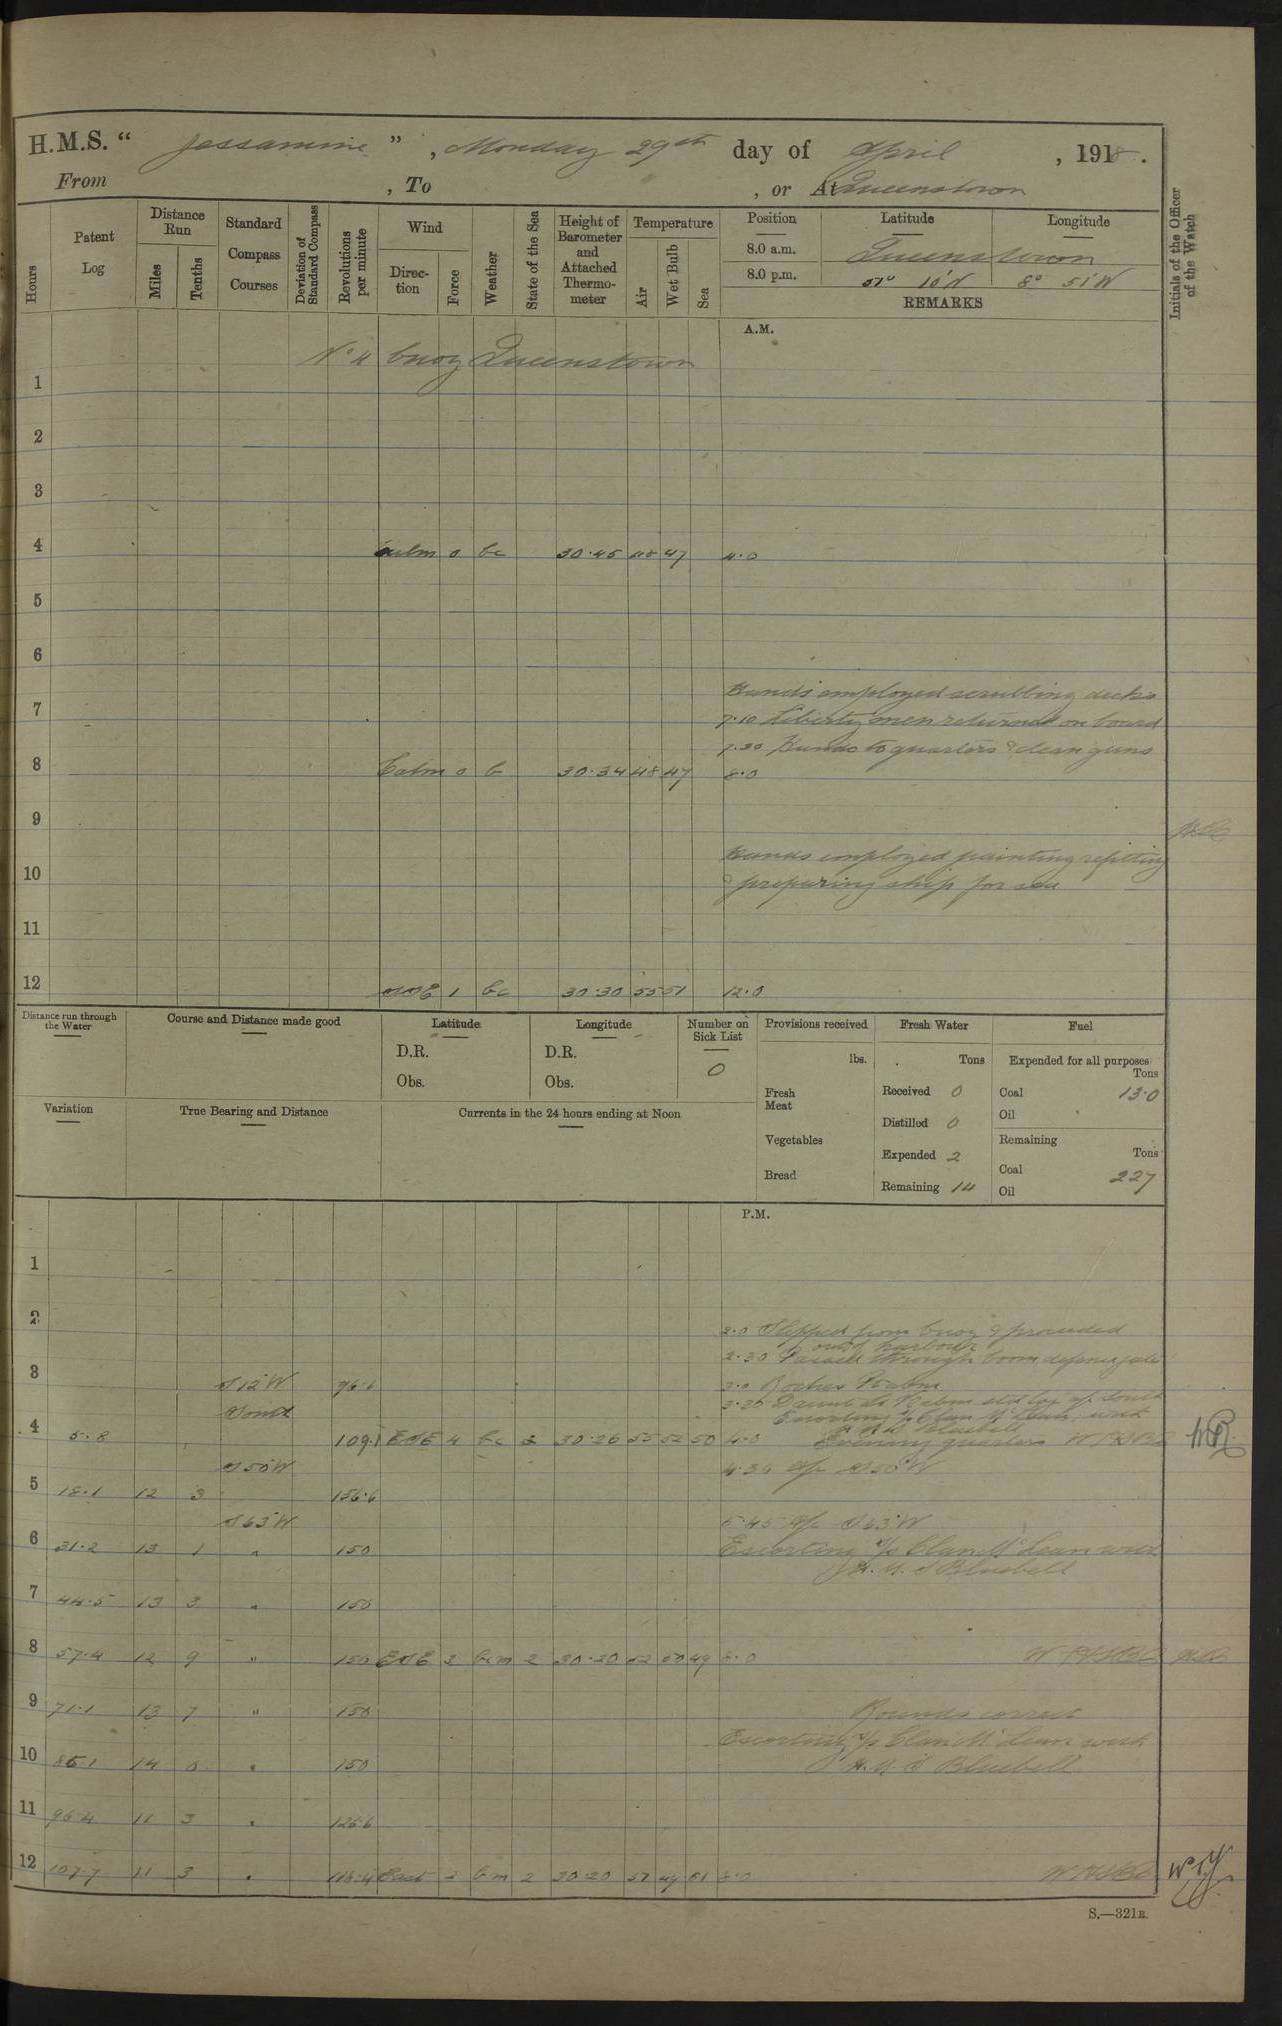 H.M.S. “ Jessamine ” , Monday 29th day of April , 1918 .
From , To , or At Queenstown
Hours
Patent Log
Distance Run
Miles
Tenths
Standard Compass Courses
Deviation of Standard Compass
Revolutions per minute
Wind
Direc-tion
Force
Weather
State of the Sea
Height of Barometer and Attached Thermo-meter
Temperature
Air
Wet Bulb
Sea
Position Latitude Longitude
8.0 a.m. Queenstown
8.0 p.m. 51° 10'N 8° 51'W
REMARKS
Initials of the Officer of the Watch
A.M.
No 4 buoy Queenstown
1
2
3
4 Calm 0 bc 30.45 48 47 4.0
5
6
Hands employed scrubbing decks
7 7.10 Liberty men returned on board
7.30 Hands to quarters & clean guns
8 Calm 0 b 30.34 48 47 8.0
9
Hands employed painting refitting
10 & preparing ship for sea
11
12 SSE 1 bc 30.30 55 51 12.0
Distance run through the Water
Course and Distance made good
Latitude
D.R.
Obs.
Longitude
D.R.
Obs.
Number on Sick List
0
Provisions received
lbs.
Fresh Meat
Vegetables
Bread
Fresh Water
Tons
Received 0
Distilled 0
Expended 2
Remaining 14
Fuel
Expended for all purposes
Tons
Coal 13.0
Oil
Remaining
Tons
Coal 227
Oil
Variation
True Bearing and Distance
Currents in the 24 hours ending at Noon
P.M.
1
2
2.0 Slipped from buoy & proceeded
out of harbour
2.30 Passed through boom defence gate
3 S 12 W 96.6 3.0 Roches Point
South 3.25 Daunt Lt Set log South
Escorting s/s Clan McLean with
H.M.S Bluebell
4 5.8 109.1 ESE 4 bc 3 30.26 55 52 50 4.0 Evening quarters
S 50 W 4.34 a/c S 50 W
5 18.1 12 3 156.6
S 63 W 5.45 a/c S 63 W
6 31.2 13 1 " 150 Escorting s/s Clan McLean with
H.M.S Bluebell
7 44.5 13 3 " 150
8 57.4 12 9 " 150 ESE 3 bcm 2 30.20 52 50 49 8.0
9 71.1 13 7 " 150 Rounds correct
Escorting s/s Clan McLean with
10 85.1 14 0 " 150 H.M.S Bluebell
11 96.4 11 3 " 126.6
12 107.7 11 3 " 116.4 East 2 bm 2 30.20 51 49 51
S.—321B.